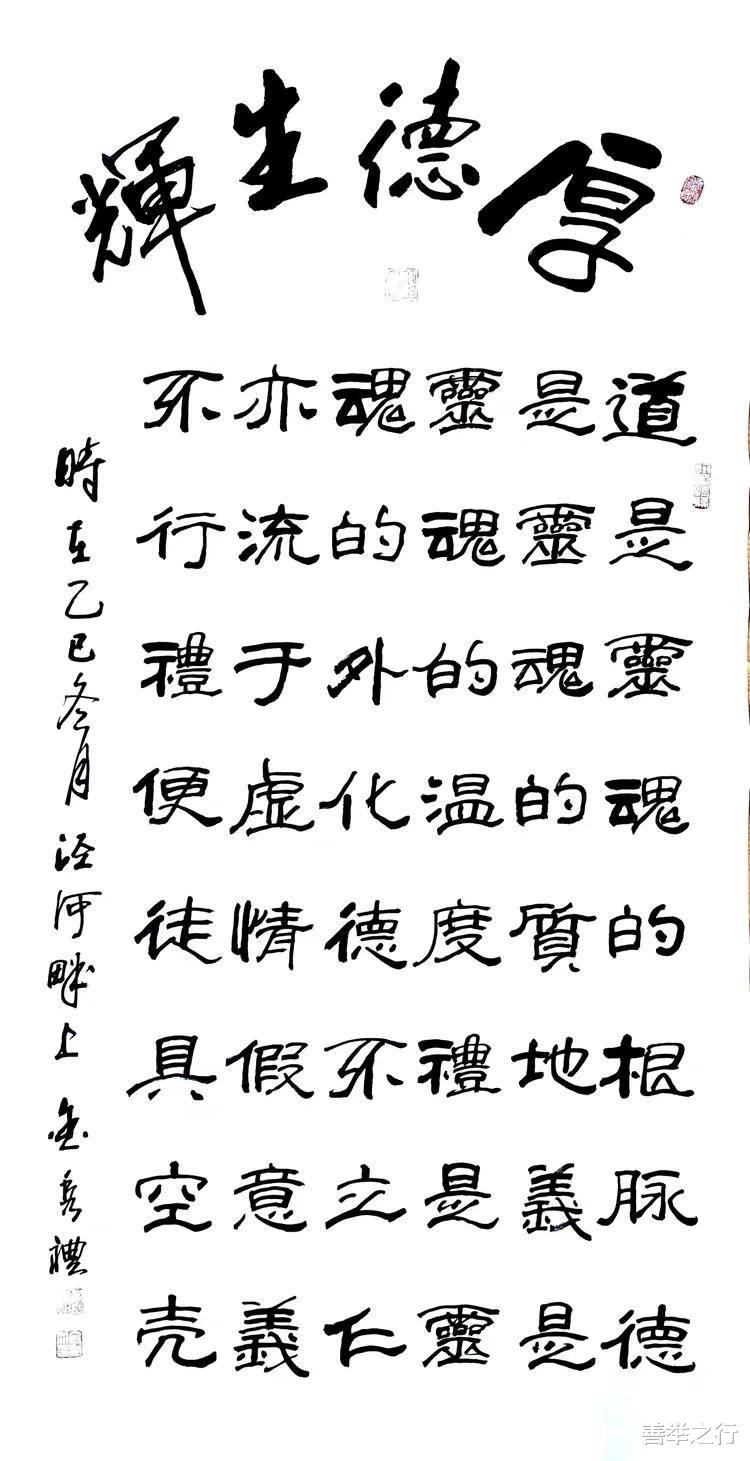 厚德生輝
道是靈魂的根脉德
是靈魂的質地義是
靈魂的温度禮是靈
魂的外化德不立仁
亦流于虛情假意義
不行禮便徒具空壳
時在乙巳冬月泾河畔上 禮
善举之行